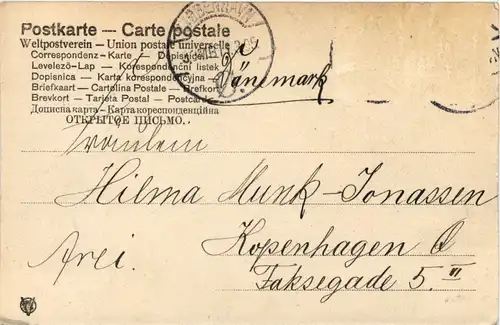 Postkarte — Carte postale
Weltpostverein — Union postale universelle
Correspondenz-Karte — Dopisnici
Levelező-Lap — Korespondenční listek
Dopisnica — Karta korespondencyjna
Briefkaart — Cartolina Postale — Brefkort
Brevkort — Tarjeta Postal — Postcard
Дописна карта — Карта кореспонденційна
ОТКРЫТОЕ ПИСЬМО.
KJØBENHAVN
Dänemark
Fräulein
Hilma Munk-Jonassen
Kopenhagen Ö
frei.
Faksegade 5. III